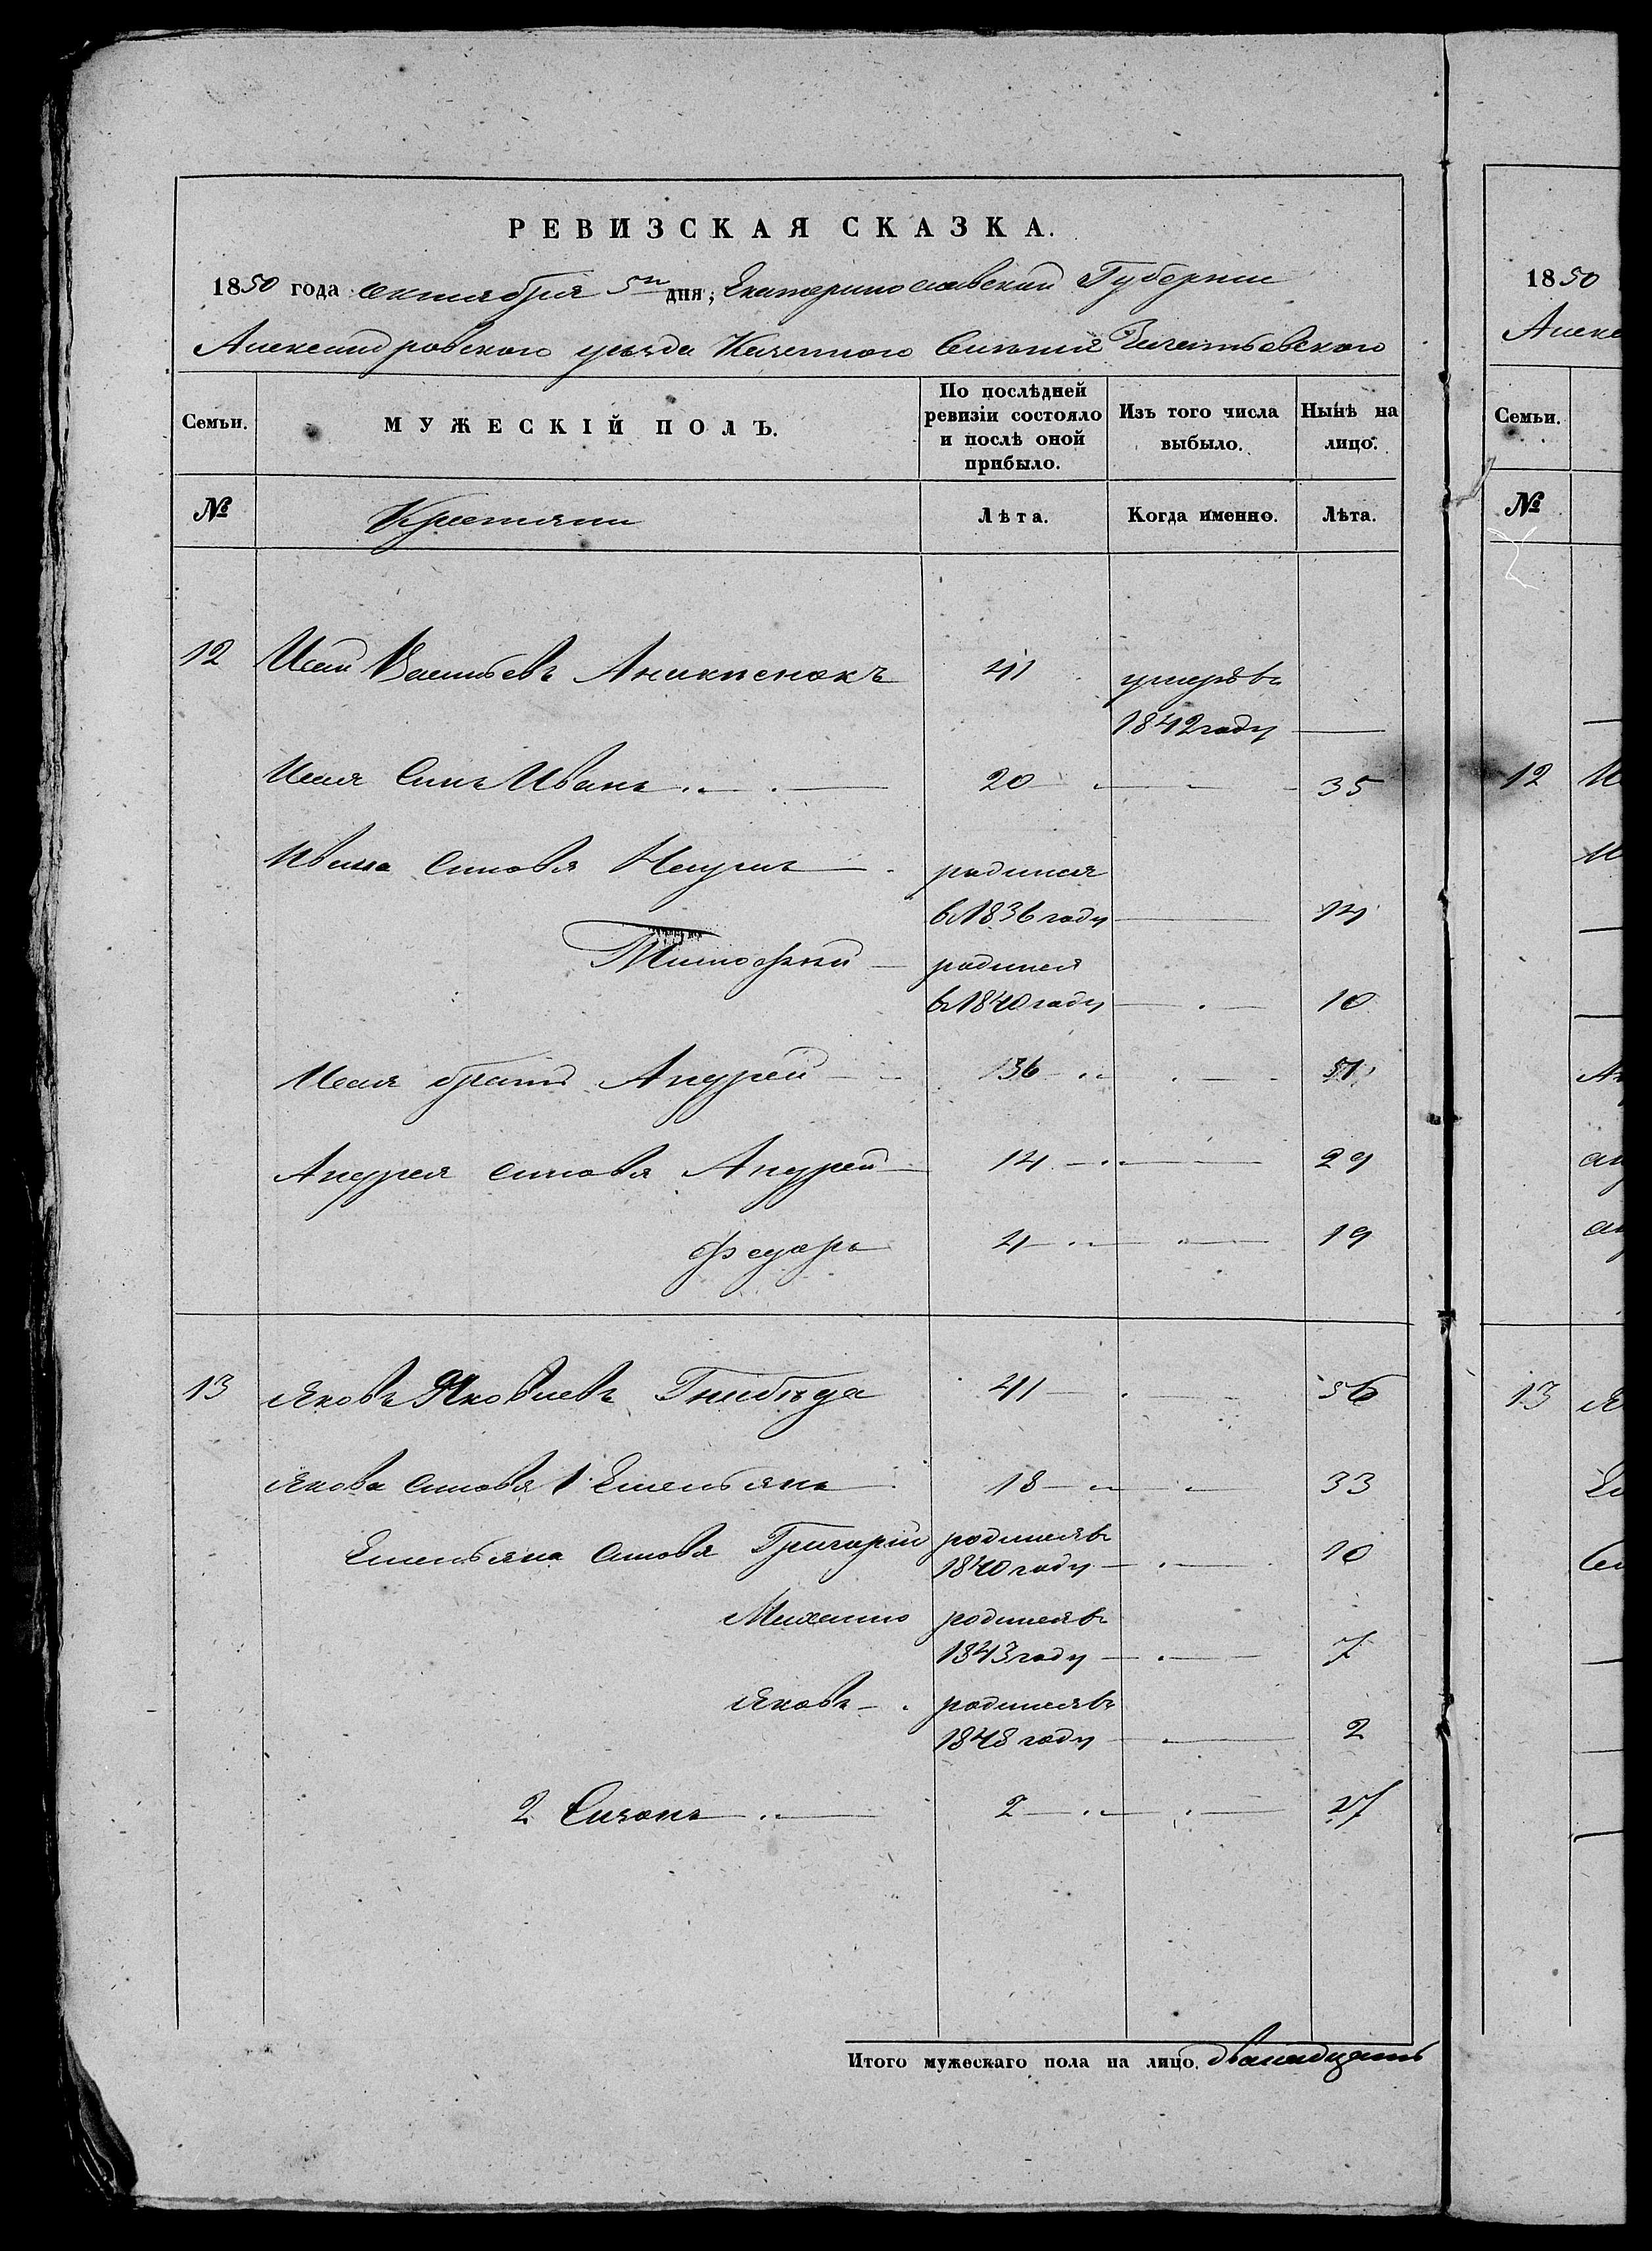 РЕВИЗСКАЯ СКАЗКА.
1850 года октября 5го дня; Екатеринославской Губернии
Александровского уезда Казенного Селения
Семьи.
МУЖЕСКІЙ ПОЛЪ.
По послѣдней ревизіи состояло и послѣ оной прибыло.
Изъ того числа выбыло.
Нынѣ на лицо.
№
Крестьяни
Лѣта.
Когда именно.
Лѣта.
12 Исай Васильевъ 41 умеръ въ
1842 году —
Исая Сынъ Иванъ 20 — 35
Ивана Сыновья Наумъ родился
въ 1836 году — 14
Тимофей родился
въ 1840 году — 10
Исая братъ Андрей 36 — 51
Андрея сыновья Андрей 14 — 29
Федоръ 4 — 19
13 Яковъ Яковлевъ Гнибѣда 41 — 56
Якова сыновья 1 Емельянъ 18 — 33
Емельяна сыновья Григорій родился въ
1840 году — 10
Михайло родился въ
1843 году — 7
Яковъ — родился въ
1848 году — 2
2 Сизонъ 2 — 17
Итого мужескаго пола на лицо. двенадцать
1850
Алекс
Семьи.
№
12
13